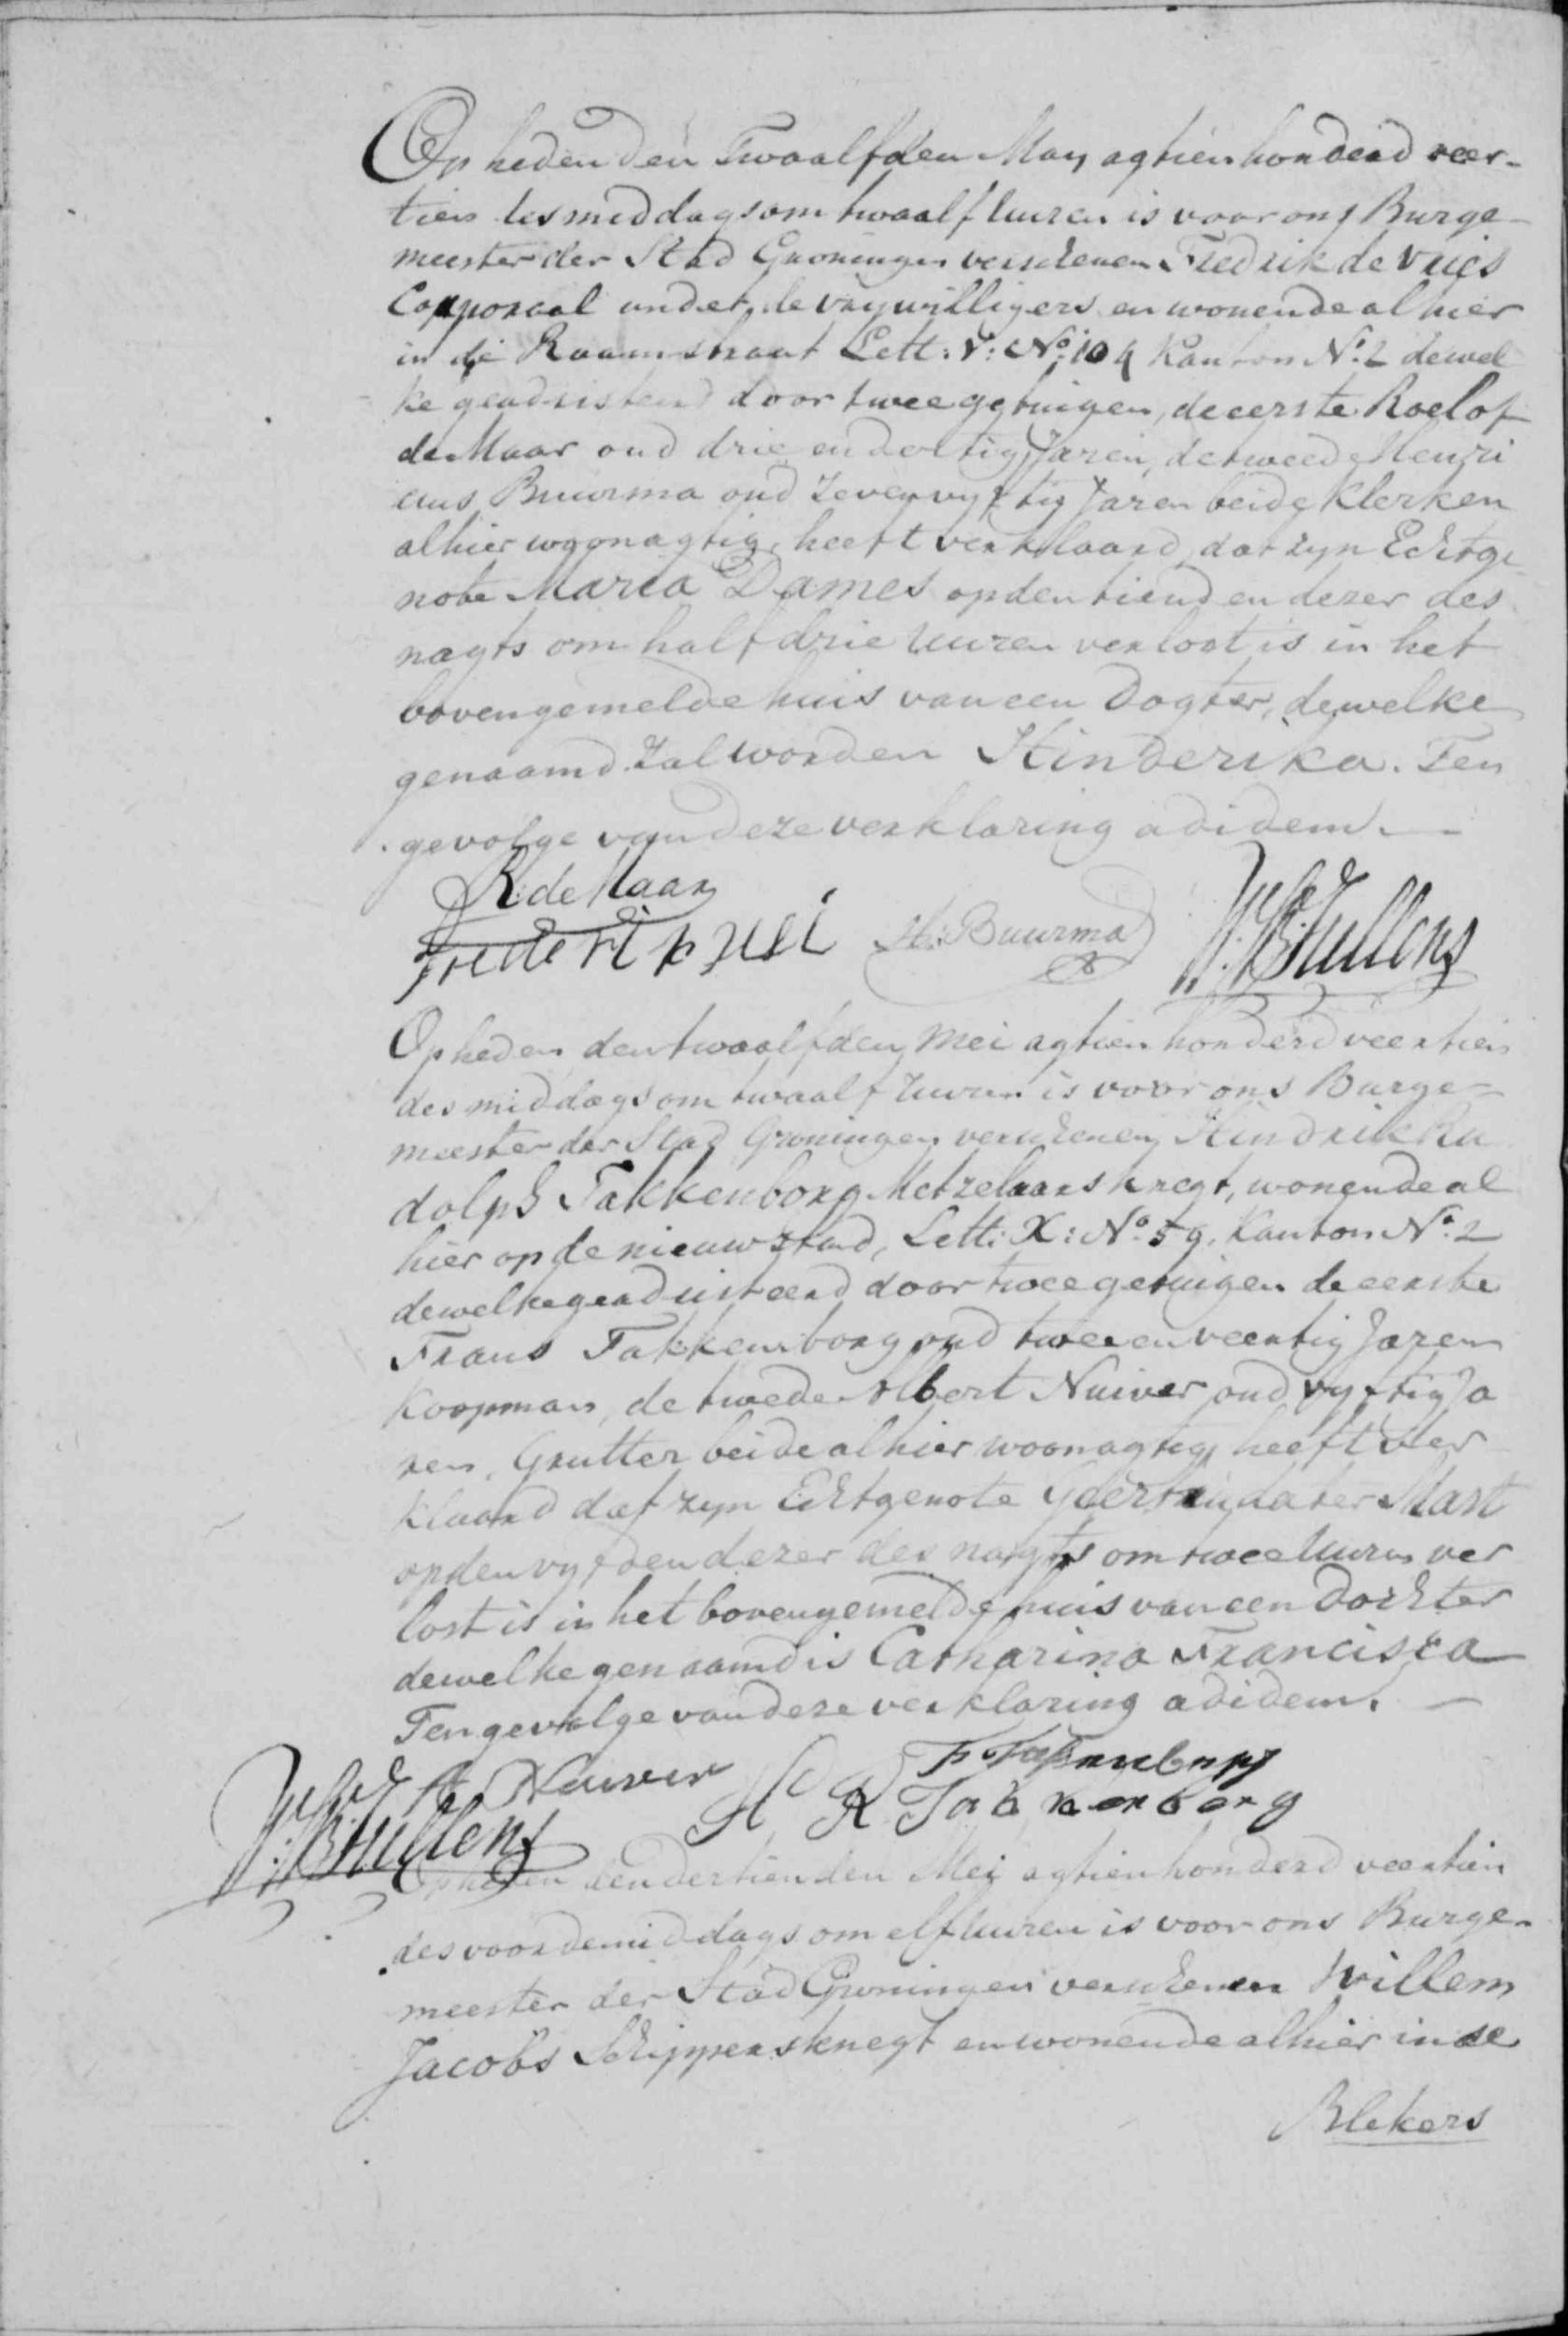 Op heden den Twaalfden May agtien honderd veer-
tien des middags om twaalf uuren is voor ons Burge-
meester der Stad Groningen verschenen Fredrik de Vries
Corporaal under de vrywilligers en wonende alhier
in de Raamstraat Lett: V: No: 104 Kanton No: 2 dewel
ke geadsisteerd door twee getuigen, de eerste Roelof
de Maar oud drie en dertig Jaren, de tweede Henri
cus Buurma oud zeven vyftig Jaren beide Klerken
alhier woonagtig, heeft verklaard, dat zyn Echtge
note Maria Dames op den tienden dezer des
nagts om half drie uuren verlost is in het
bovengemelde huis van een Dogter, dewelke
genaamd zal worden Hinderika. Ten
gevolge van deze verklaring ad idem. —
R: de Maar
Frederik
H: Buurma
Op heden den twaalfden Mei agtien honderd veertien
des middags om twaalf uuren is voor ons Burge-
meester der Stad Groningen verschenen Hindrik Ru
dolph Takkenborg Metzelaarsknegt, wonende al
hier op de nieuwstad, Lett: X: No 59, Kanton No. 2
dewelke geadsisteerd door twee getuigen de eerste
Frans Takkenborg oud twee en veertig Jaren
Koopman, de twede Albert Nuiver oud vyftig Ja
ren, Grutter beide alhier woonagtig heeft ver
klaard dat zyn Echtgenote Geertruida ter Mast
op den vyfden dezer des nagts om twee uuren ver
lost is in het bovengemelde huis van een Dochter
dewelke genaamd is Catharina Francisca
Ten gevolge van deze verklaring ad idem. —
A. Nuiver
F. Takkenborg
H R Takkenborg
Op heden den dertienden Mei agtien honderd veertien
des voordemiddags om elf uuren is voor ons Burge-
meester der Stad Groningen verschenen Willem
Jacobs Schippersknegt en wonende alhier in de
Blekers